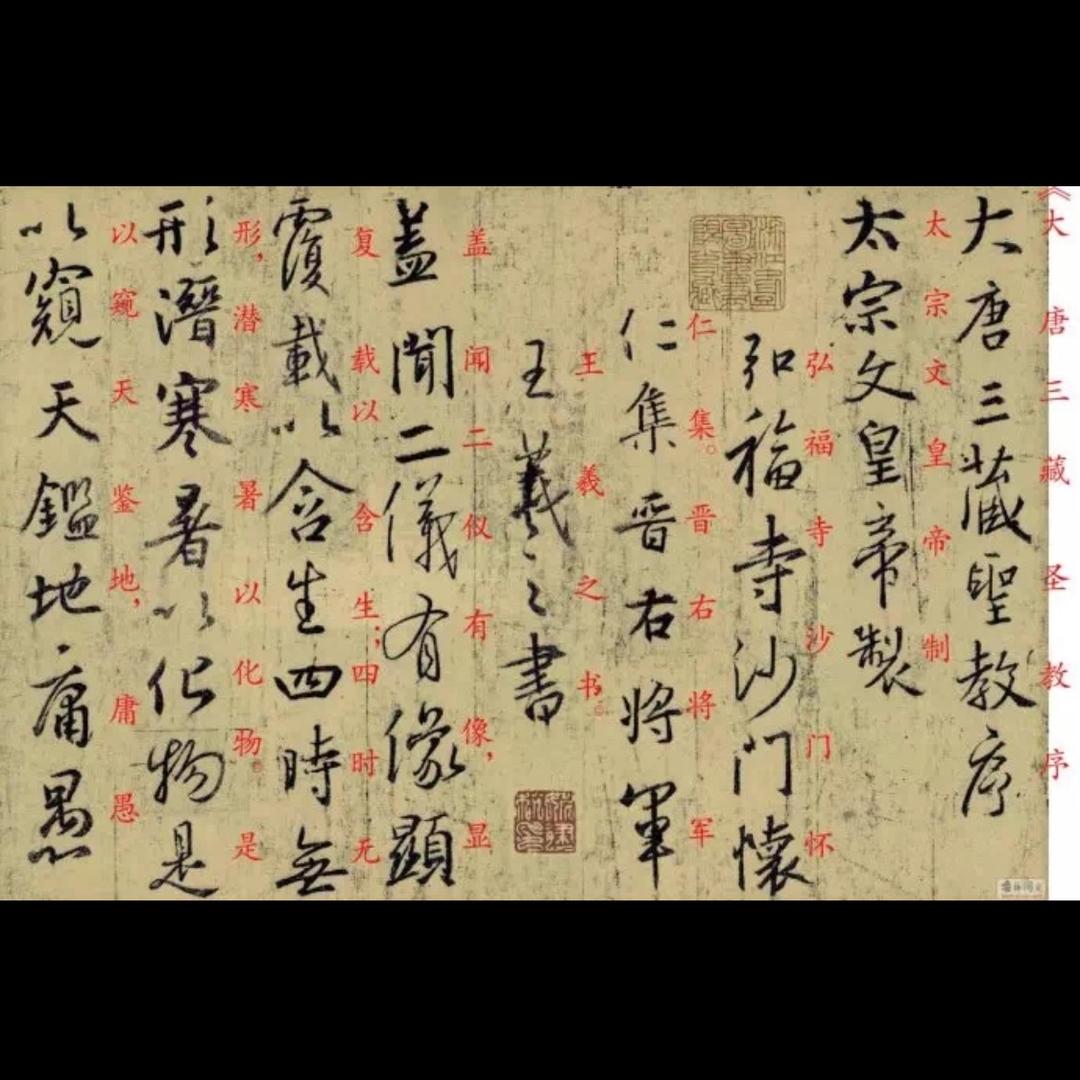 《大唐三藏圣教序
大唐三藏聖教序
太宗文皇帝制
太宗文皇帝製
弘福寺沙门怀
弘福寺沙門懷
仁集。晋右将军
仁集晉右將軍
王羲之书。
王羲之書
盖闻二仪有像,显
蓋聞二儀有像顯
复载以含生;四时无
覆載以含生四時無
形,潜寒暑以化物。是
形潛寒暑以化物是
以窥天鉴地,庸愚
以窺天鑑地庸愚